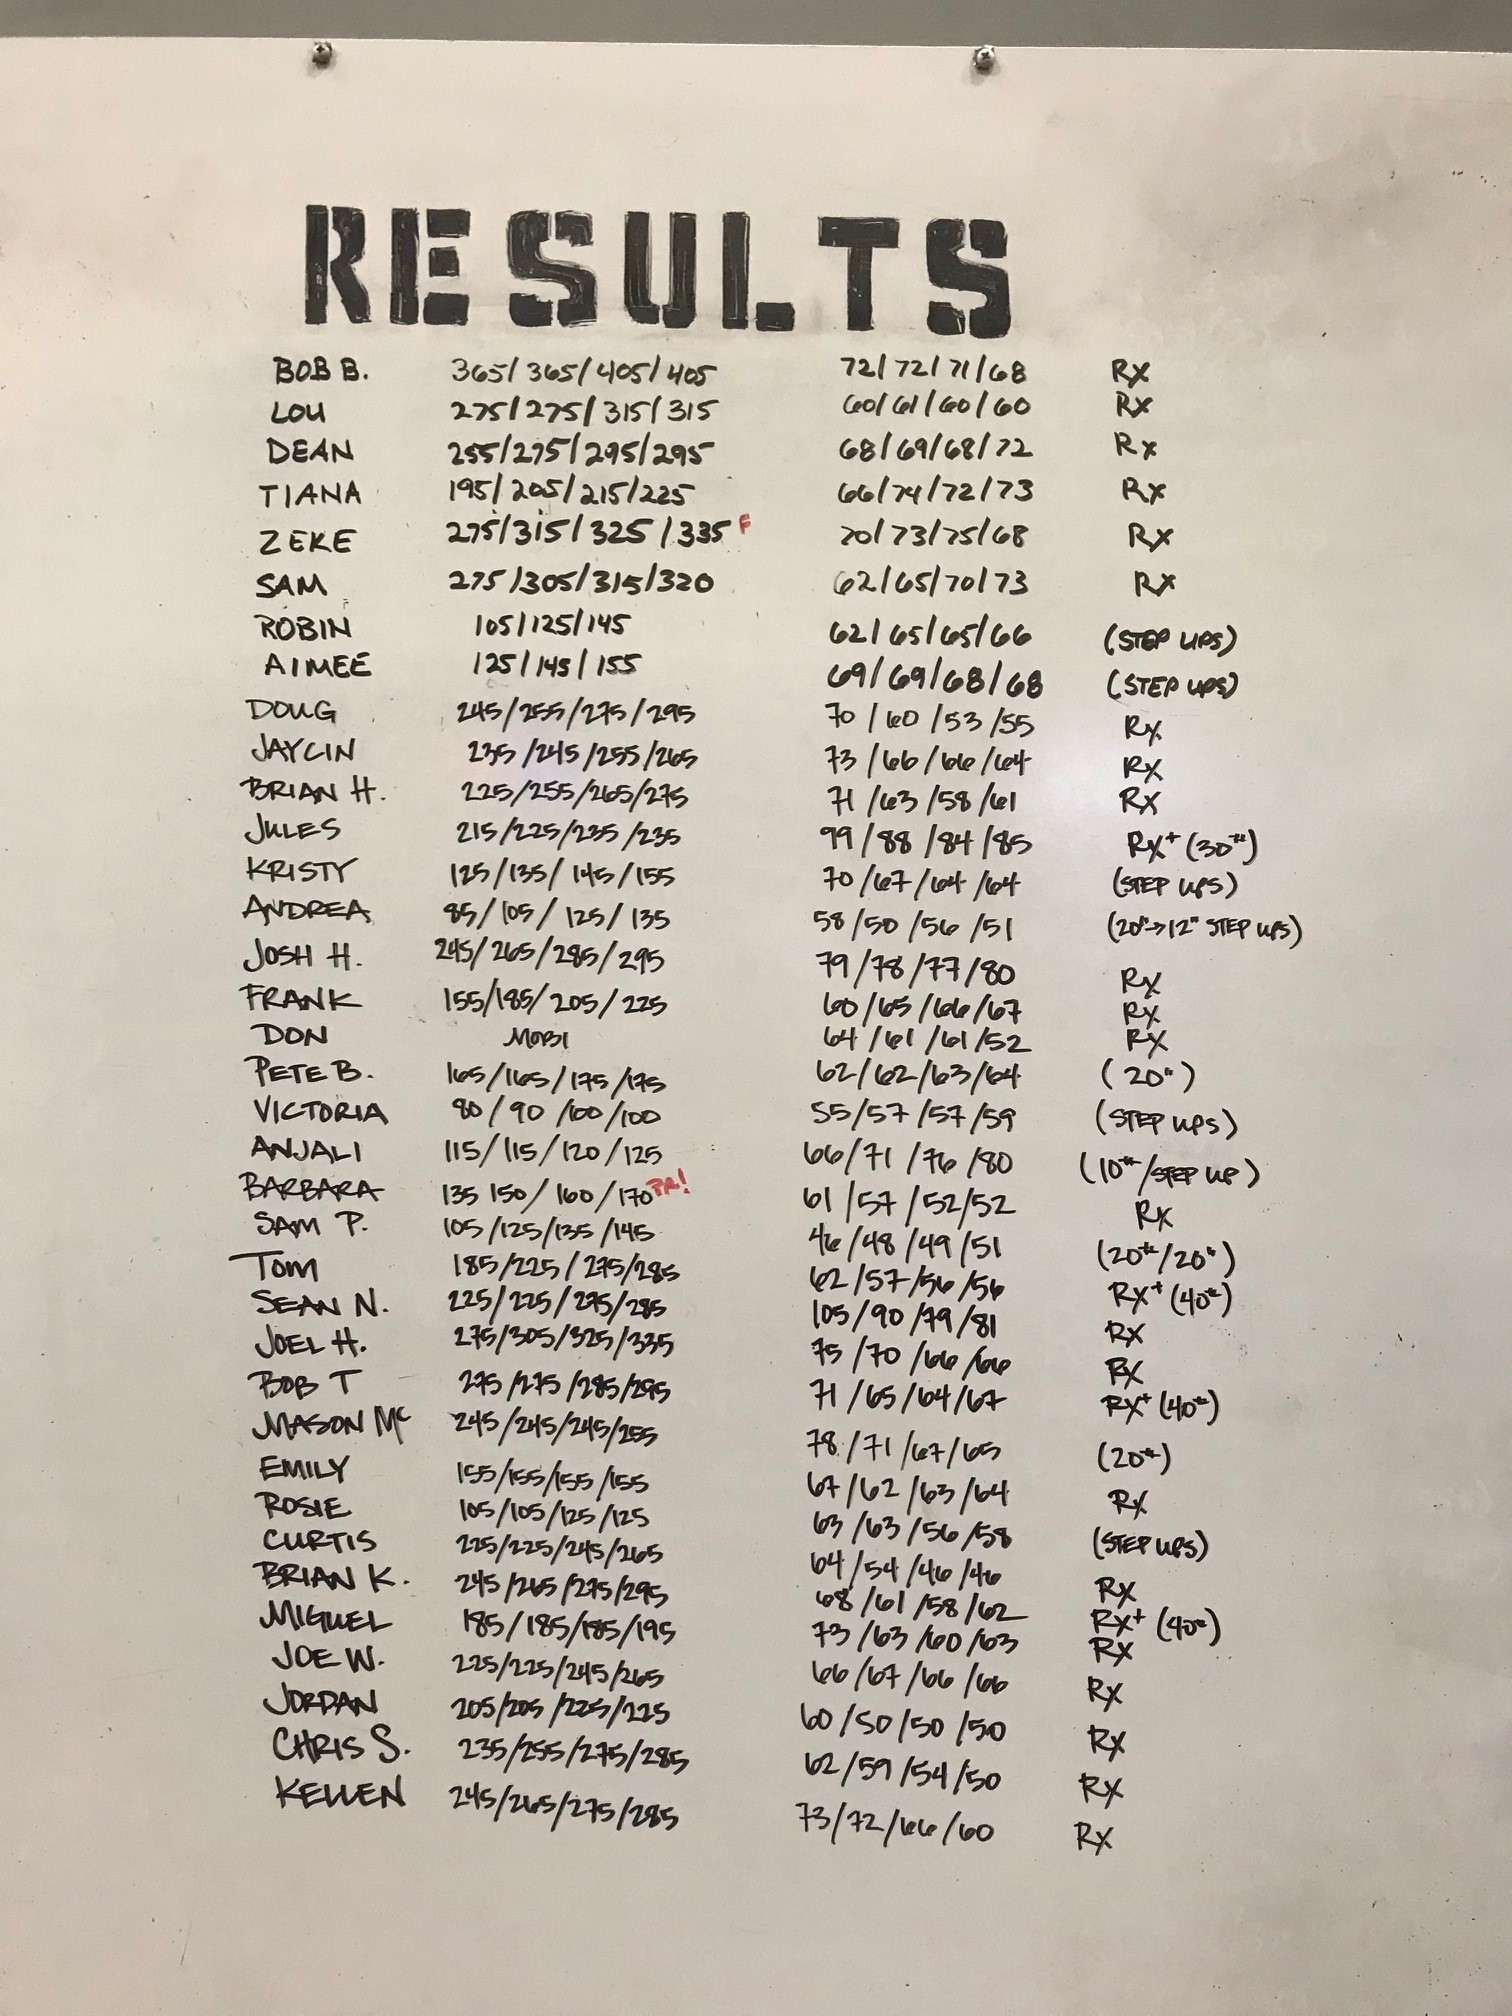 RESULTS
BOB B. 365/365/405/405 72/72/71/68 Rx
LOU 275/275/315/315 60/61/60/60 Rx
DEAN 255/275/295/295 68/69/68/72 Rx
TIANA 195/205/215/225 66/74/72/73 Rx
ZEKE 275/315/325/335 F 70/73/75/68 Rx
SAM 275/305/315/320 62/65/70/73 Rx
ROBIN 105/125/145 62/65/65/66 (STEP UPS)
AIMEE 125/145/155 69/69/68/68 (STEP UPS)
DOUG 245/255/275/295 70/60/53/55 Rx
JAYCIN 235/245/255/265 73/66/66/64 Rx
BRIAN H. 225/255/265/275 71/63/58/61 Rx
JULES 215/225/235/235 99/88/84/85 Rx+ (30#)
KRISTY 125/135/145/155 70/67/64/64 (STEP UPS)
ANDREA 85/105/125/135 58/50/56/51 (20"→12" STEP UPS)
JOSH H. 245/265/285/295 79/78/77/80 Rx
FRANK 155/185/205/225 60/65/66/67 Rx
DON MOBI 64/61/61/52 Rx
PETE B. 165/165/175/175 62/62/63/64 (20")
VICTORIA 80/90/100/100 55/57/57/59 (STEP UPS)
ANJALI 115/115/120/125 66/71/76/80 (10#/STEP UP)
BARBARA 135 150/160/170 PR! 61/57/52/52 Rx
SAM P. 105/125/135/145 46/48/49/51 (20#/20")
TOM 185/225/275/285 62/57/56/56 Rx+ (40#)
SEAN N. 225/225/275/285 105/90/79/81 Rx
JOEL H. 275/305/325/335 75/70/66/66 Rx
BOB T 275/275/285/295 71/65/64/67 Rx+ (40#)
MASON Mc 245/245/245/255 78/71/67/65 (20#)
EMILY 155/155/155/155 67/62/63/64 Rx
ROSIE 105/105/125/125 63/63/56/58 (STEP UPS)
CURTIS 225/225/245/265 64/54/46/46 Rx
BRIAN K. 245/265/275/295 68/61/58/62 Rx+ (40#)
MIGUEL 185/185/185/195 73/63/60/63 Rx
JOE W. 225/225/245/265 66/67/66/66 Rx
JORDAN 205/205/225/225 60/50/50/50 Rx
CHRIS S. 235/255/275/285 62/59/54/50 Rx
KELLEN 245/265/275/285 73/72/66/60 Rx